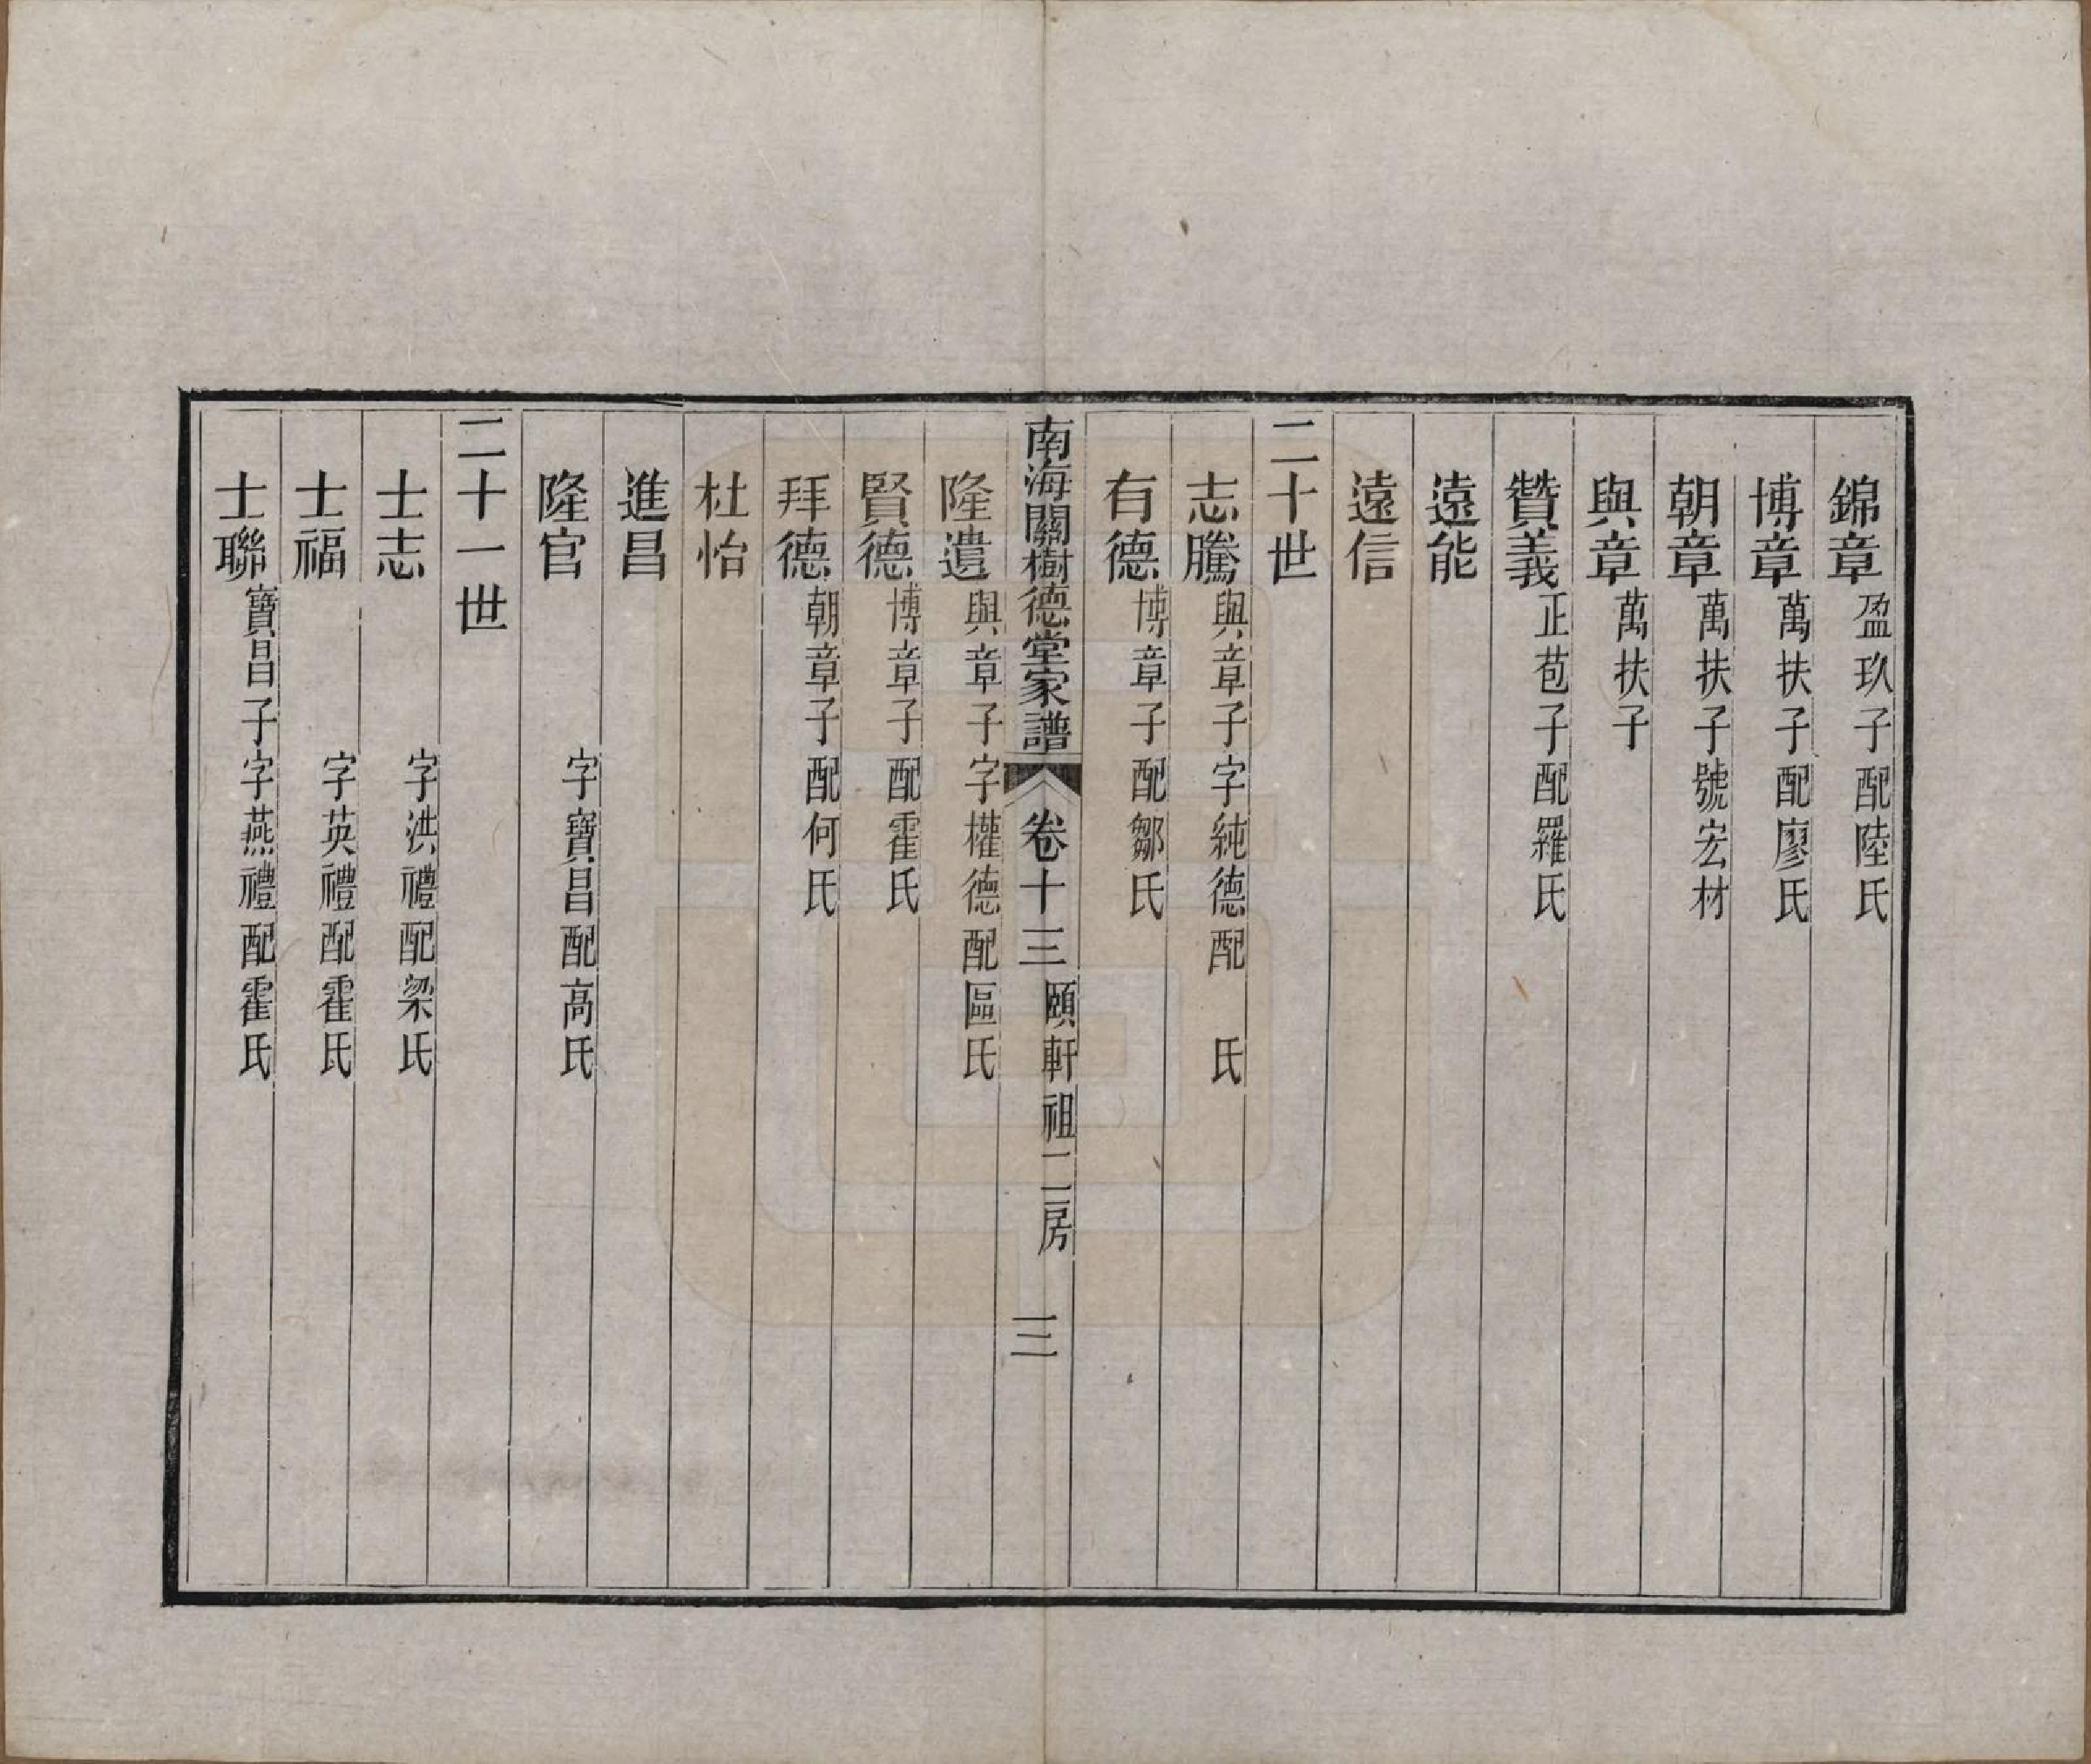 錦章盈玖子配陸氏
博章萬扶子配廖氏
朝章萬扶子號宏材
與章萬扶子
贊義正苞子配羅氏
遠能
遠信
二十世
志騰與章子字純德配　氏
有德博章子配鄒氏
南海關樹德堂家譜　卷十三　頤軒祖二房　三
隆遺與章子字權德配區氏
賢德博章子配霍氏
拜德朝章子配何氏
杜怡
進昌
隆官　字寶昌配高氏
二十一世
士志　字洪禮配梁氏
士福　字英禮配霍氏
士聯寶昌子字燕禮配霍氏